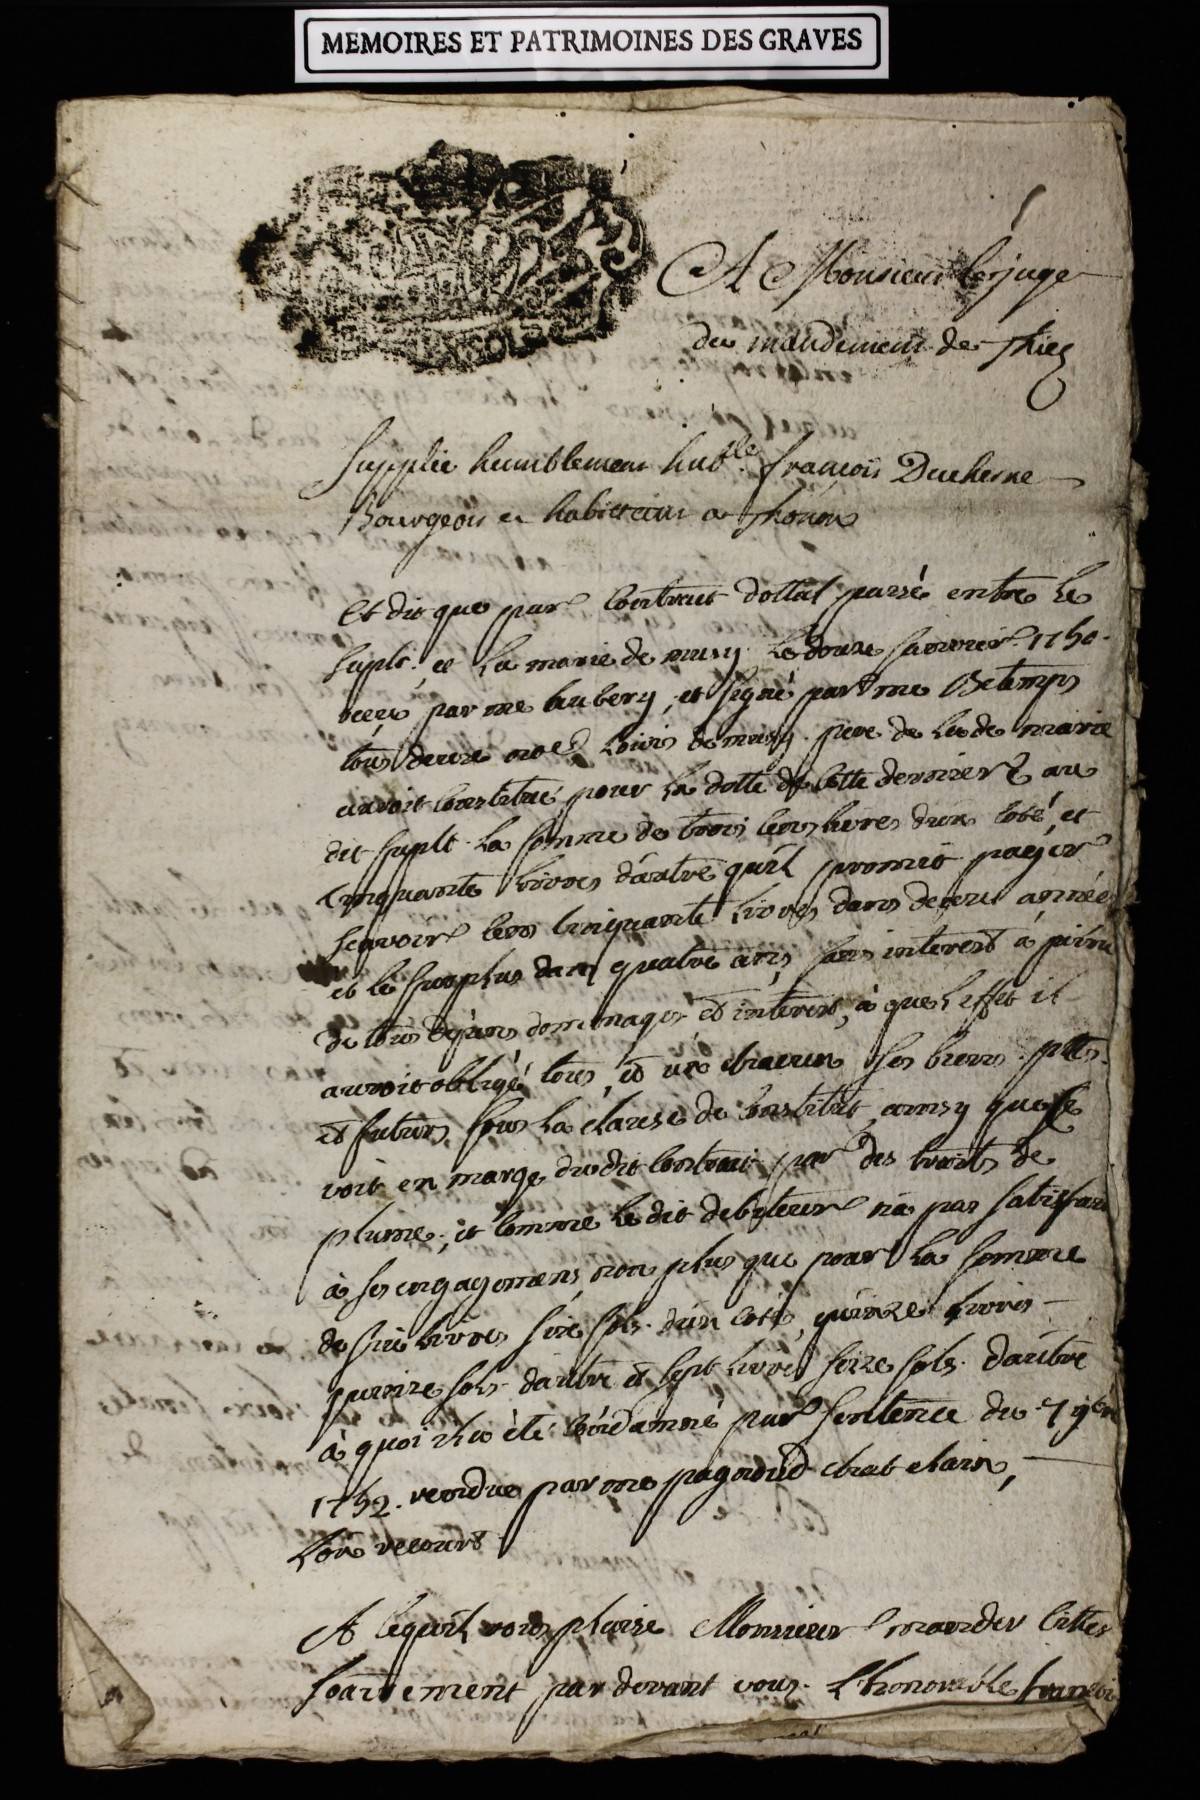 MEMOIRES ET PATRIMOINES DES GRAVES
A Monsieur le juge
du mandement de Thiez
Supplie humblement hnble françois Duchesne
Bourgeois et habittant a Thonon
Et dit que par Contract dottal passé entre le
suplt. et la marie de musy le douze janvier 1750.
receu par me aubery, et signé par me Betemps
tous deux nores Louis de musy pere de lade marie
auroit Constitué pour la dotte de cette derniere au
dit suplt. la somme de trois cens livres d'un coté, et
Cinquante livres d'autre qu'il promit payer
scavoir cens Cinquante livres dans deux années
et le surplus dans quatre ans, sans interest à peine
de tous depens dommages et interest, à quel effet il
auroit obligé tous, et un chacun ses biens pnts.
et futurs, sous la clause de Constitut, ainsy que se
voit en marge dudit Contract par des traits de
plume, et comme le dit debiteur n'a pas satisfait
à ses engagemens, non plus que pour la somme
de six livres six sols d'un coté, quinze livres
quinze sols d'autre et sept livres seize sols d'autre
à quoi il a été Condamné par sentence du 7
1752. rendue par me pagnoud chatelain,
L'on recourt
A Cequ'il vous plaise Monsieur mander Citter
sommairement par devant vous l'honorable françois